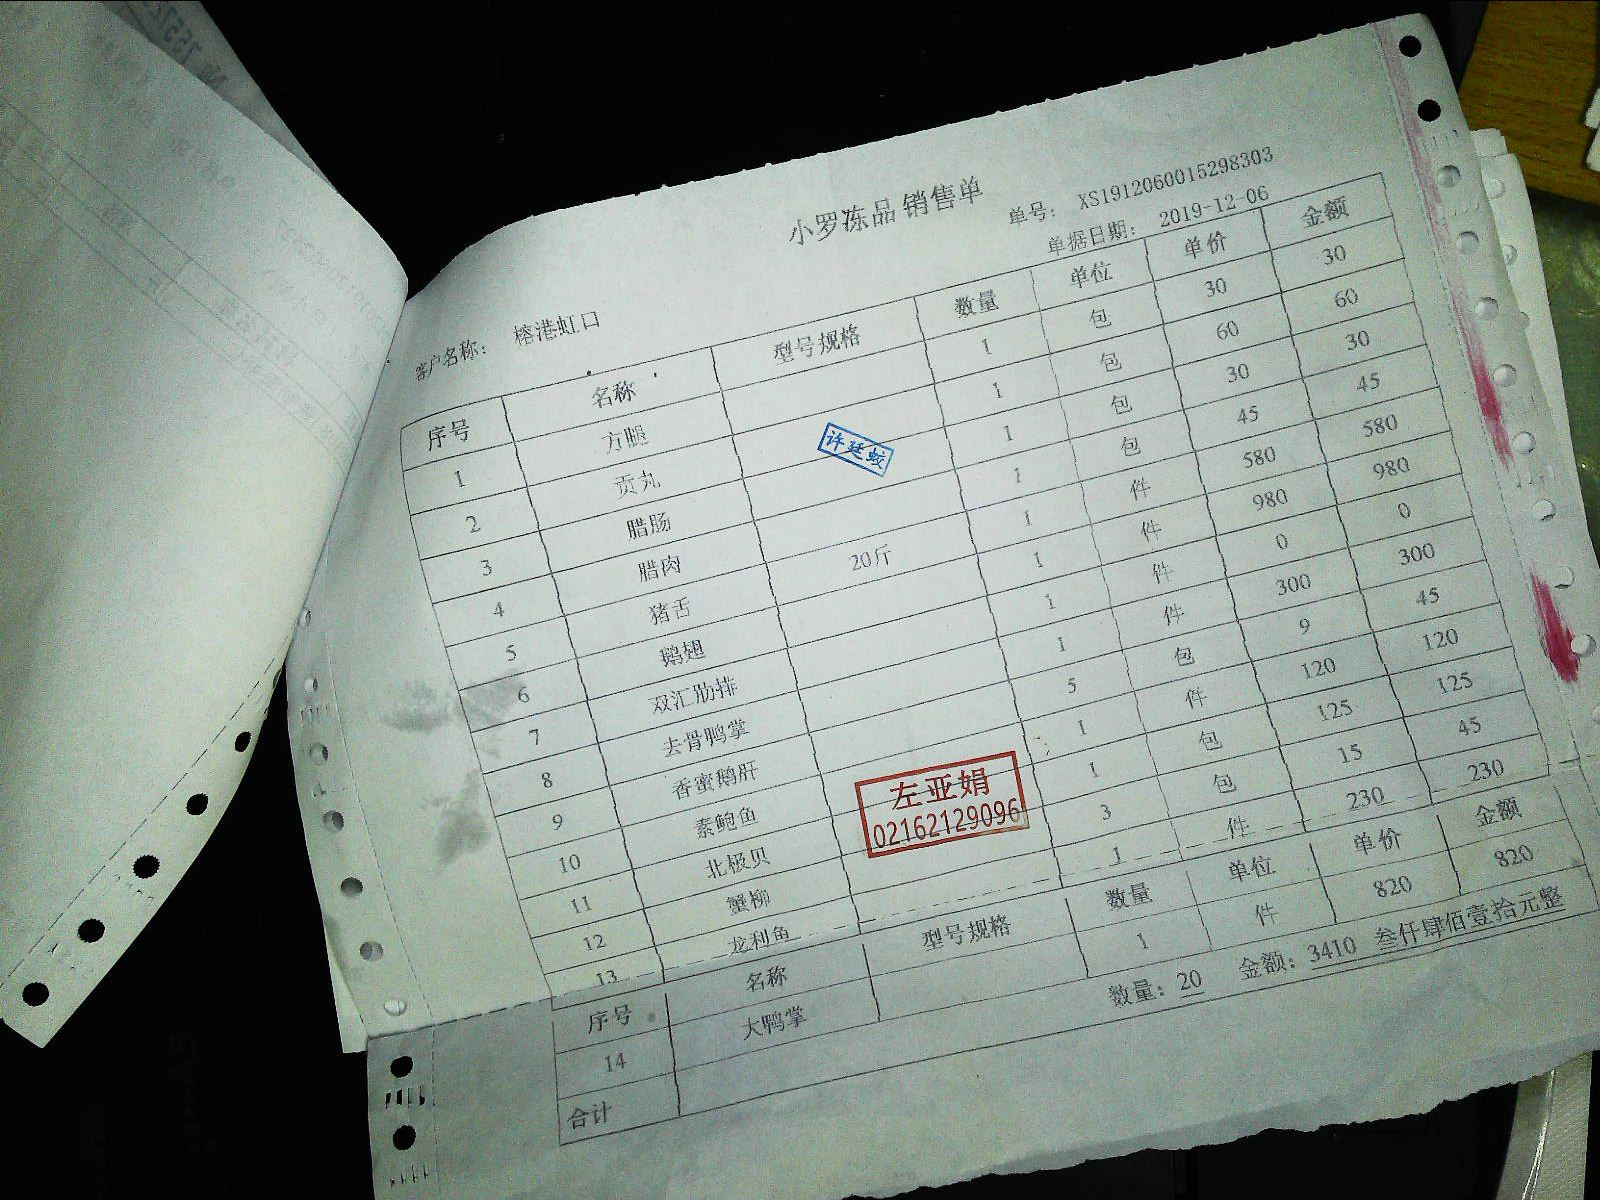 小罗冻品销售单
单号: XS1912060015298303
客户名称: 榕港虹口 单据日期: 2019-12-06
序号 名称 型号规格 数量 单位 单价 金额
1 方腿 1 包 30 30
2 贡丸 1 包 60 60
3 腊肠 1 包 30 30
4 腊肉 1 包 45 45
5 猪舌 20斤 1 件 580 580
6 鹅翅 1 件 980 980
7 双汇肋排 1 件 0 0
8 去骨鸭掌 1 件 300 300
9 香蜜鹅肝 5 包 9 45
10 素鲍鱼 1 件 120 120
11 北极贝 1 包 125 125
12 蟹柳 3 包 15 45
13 龙利鱼 1 件 230 230
序号 名称 型号规格 数量 单位 单价 金额
14 大鸭掌 1 件 820 820
合计 数量: 20 金额: 3410 叁仟肆佰壹拾元整
许廷蛟
左亚娟
02162129096